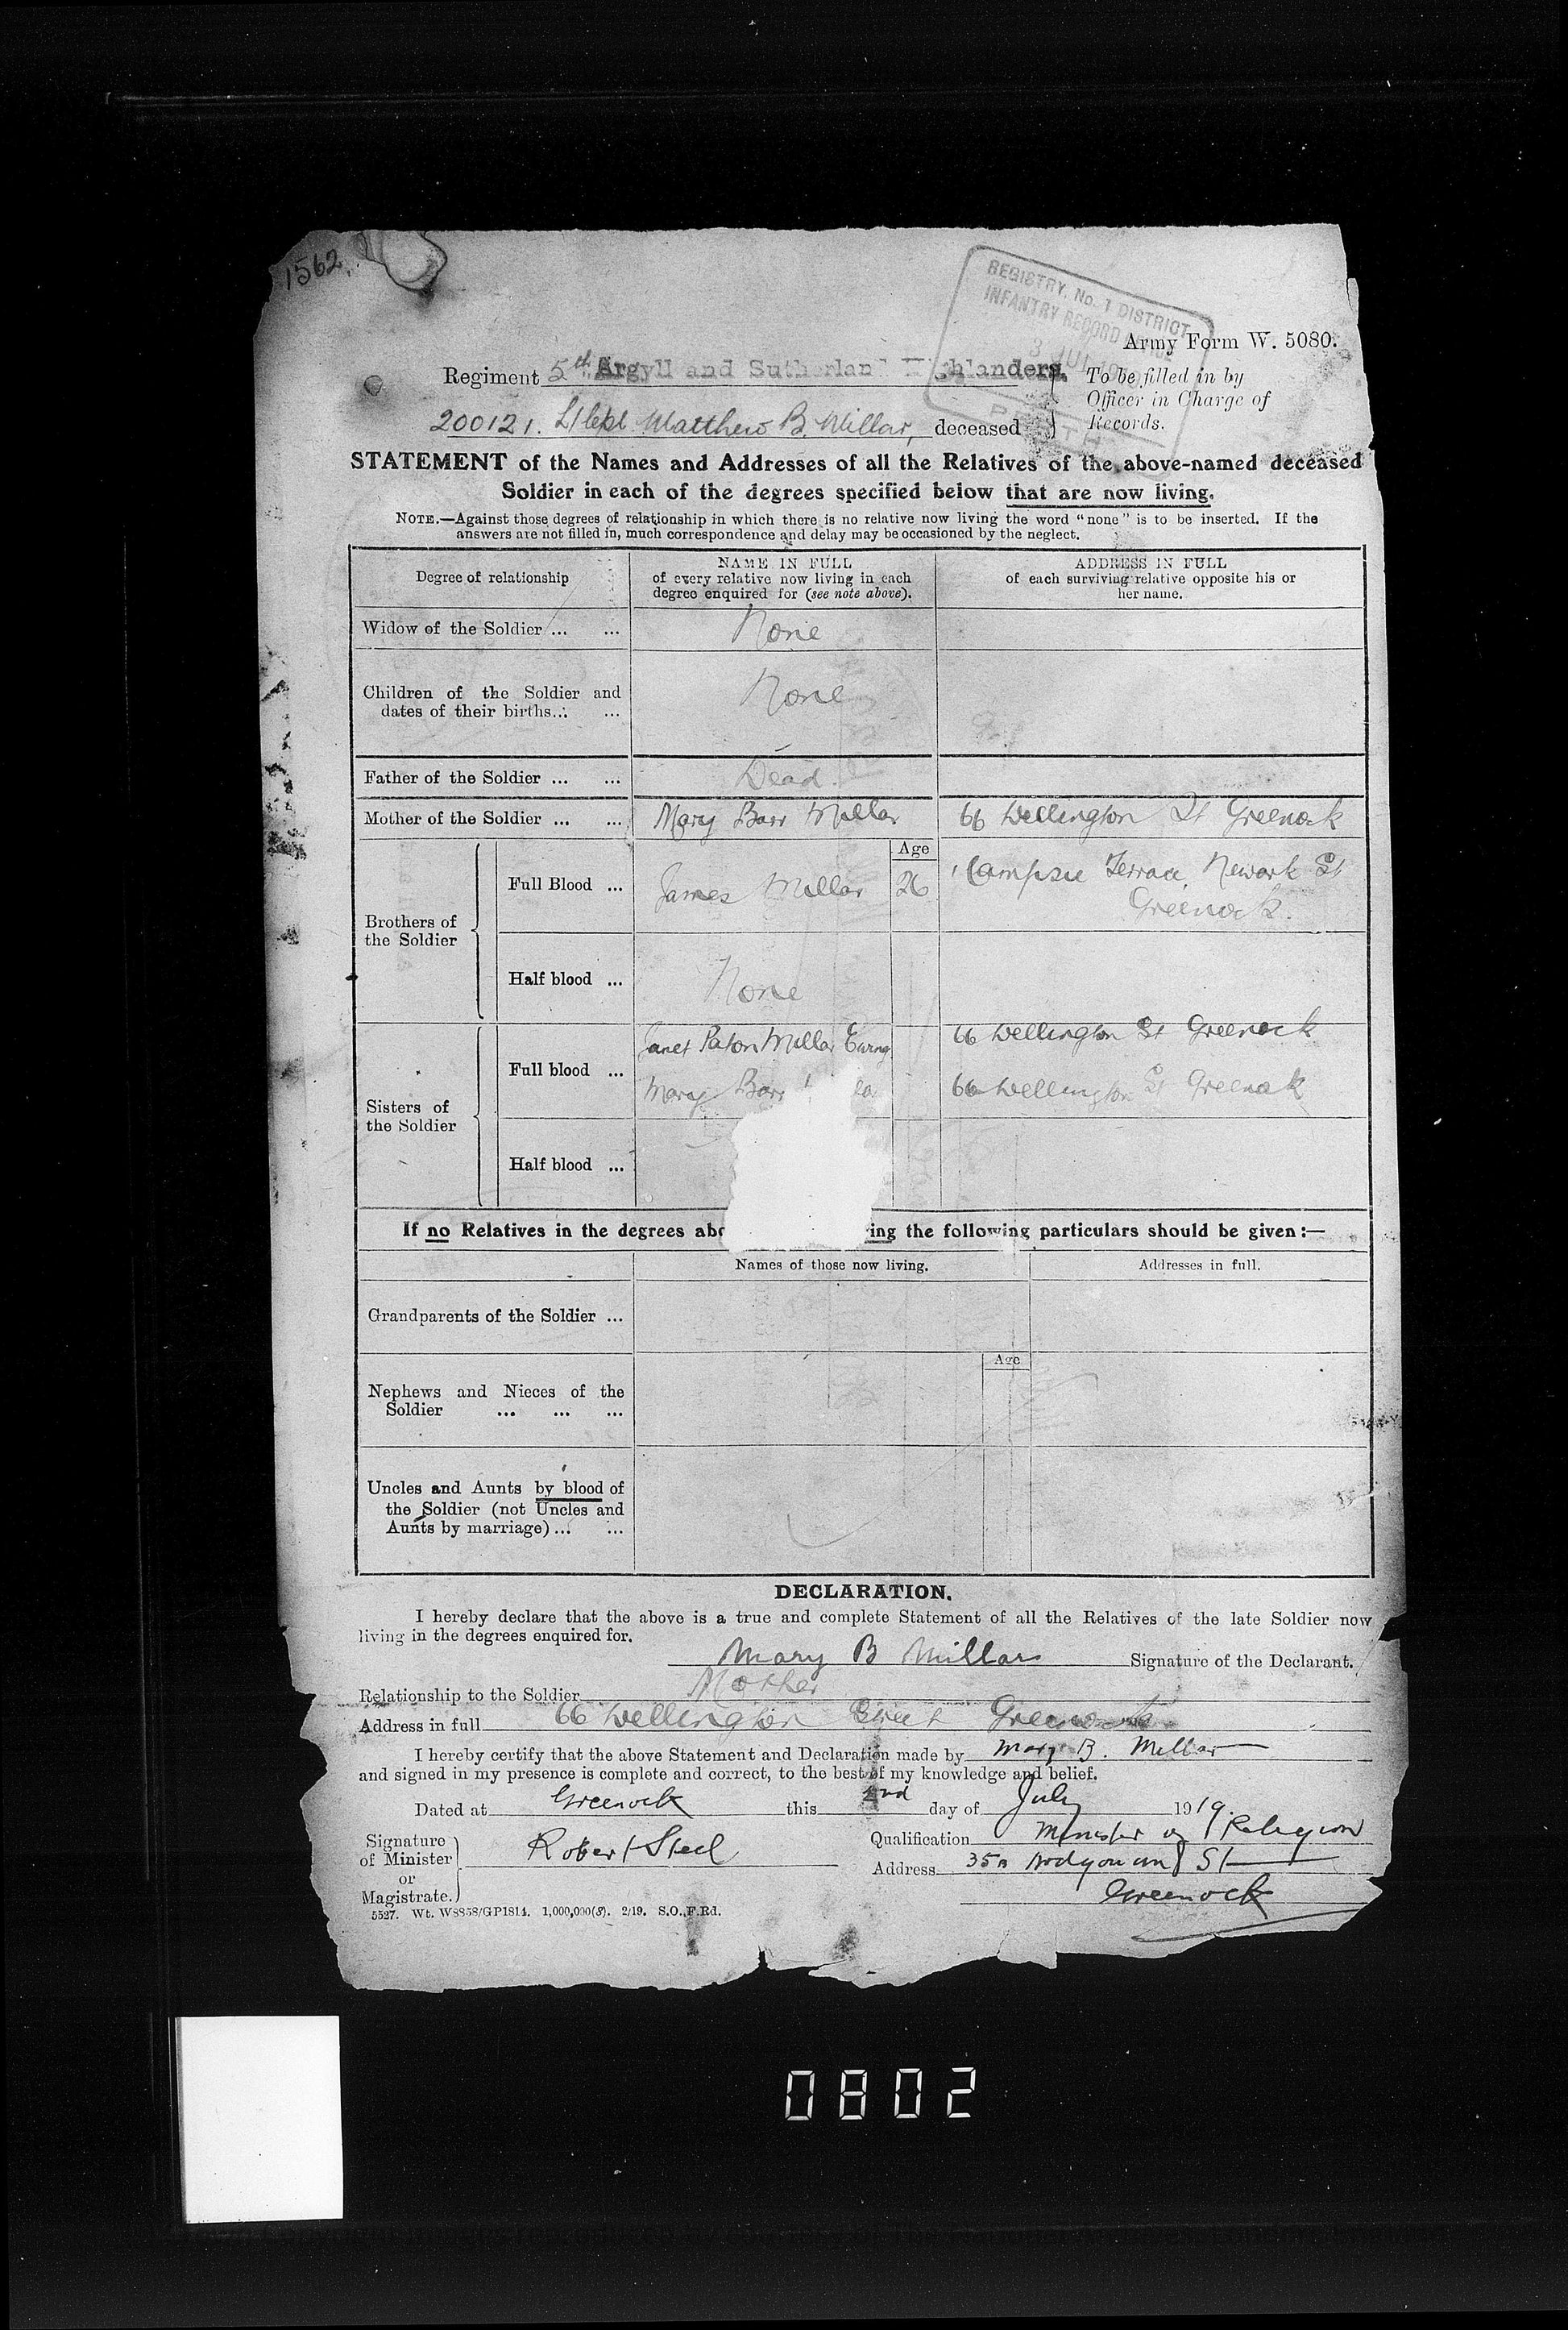 1562.
REGISTRY, No. 1 DISTRICT
INFANTRY RECORD OFFICE
3 JUL 19
PERTH
Army Form W. 5080.
Regiment 5th Argyll and Sutherland Highlanders.
To be filled in by
Officer in Charge of
Records.
200121. L/Cpl. Matthew B. Millar, deceased
STATEMENT of the Names and Addresses of all the Relatives of the above-named deceased
Soldier in each of the degrees specified below that are now living.
NOTE.—Against those degrees of relationship in which there is no relative now living the word "none" is to be inserted. If the
answers are not filled in, much correspondence and delay may be occasioned by the neglect.
Degree of relationship
NAME IN FULL
of every relative now living in each
degree enquired for (see note above).
ADDRESS IN FULL
of each surviving relative opposite his or
her name.
Widow of the Soldier ... ... None
Children of the Soldier and
dates of their births... ... None
Father of the Soldier ... ... Dead
Mother of the Soldier ... ... Mary Barr Millar 66 Wellington St Greenock
Age
Brothers of
the Soldier
Full Blood ... James Millar 26 1 Campsie Terrace, Newark St
Greenock.
Half blood ... None
Sisters of
the Soldier
Full blood ... Janet Paton Millar Ewing 66 Wellington St Greenock
Mary Barr 66 Wellington St Greenock
Half blood ...
If no Relatives in the degrees ing the following particulars should be given:—
Names of those now living.
Addresses in full.
Grandparents of the Soldier ...
Age
Nephews and Nieces of the
Soldier ... ... ...
Uncles and Aunts by blood of
the Soldier (not Uncles and
Aunts by marriage) ... ...
DECLARATION.
I hereby declare that the above is a true and complete Statement of all the Relatives of the late Soldier now
living in the degrees enquired for.
Mary B Millar Signature of the Declarant.
Relationship to the Soldier Mother
Address in full 66 Wellington Street Greenock
I hereby certify that the above Statement and Declaration made by Mary B. Millar
and signed in my presence is complete and correct, to the best of my knowledge and belief.
Dated at Greenock this 2nd day of July 1919.
Signature
of Minister
or
Magistrate.
Robert Steel
Qualification Minister of Religion
Address 35A St
Greenock
5527. Wt. W8858/GP1814. 1,000,000(8). 2/19. S.O.,F.Rd.
0802